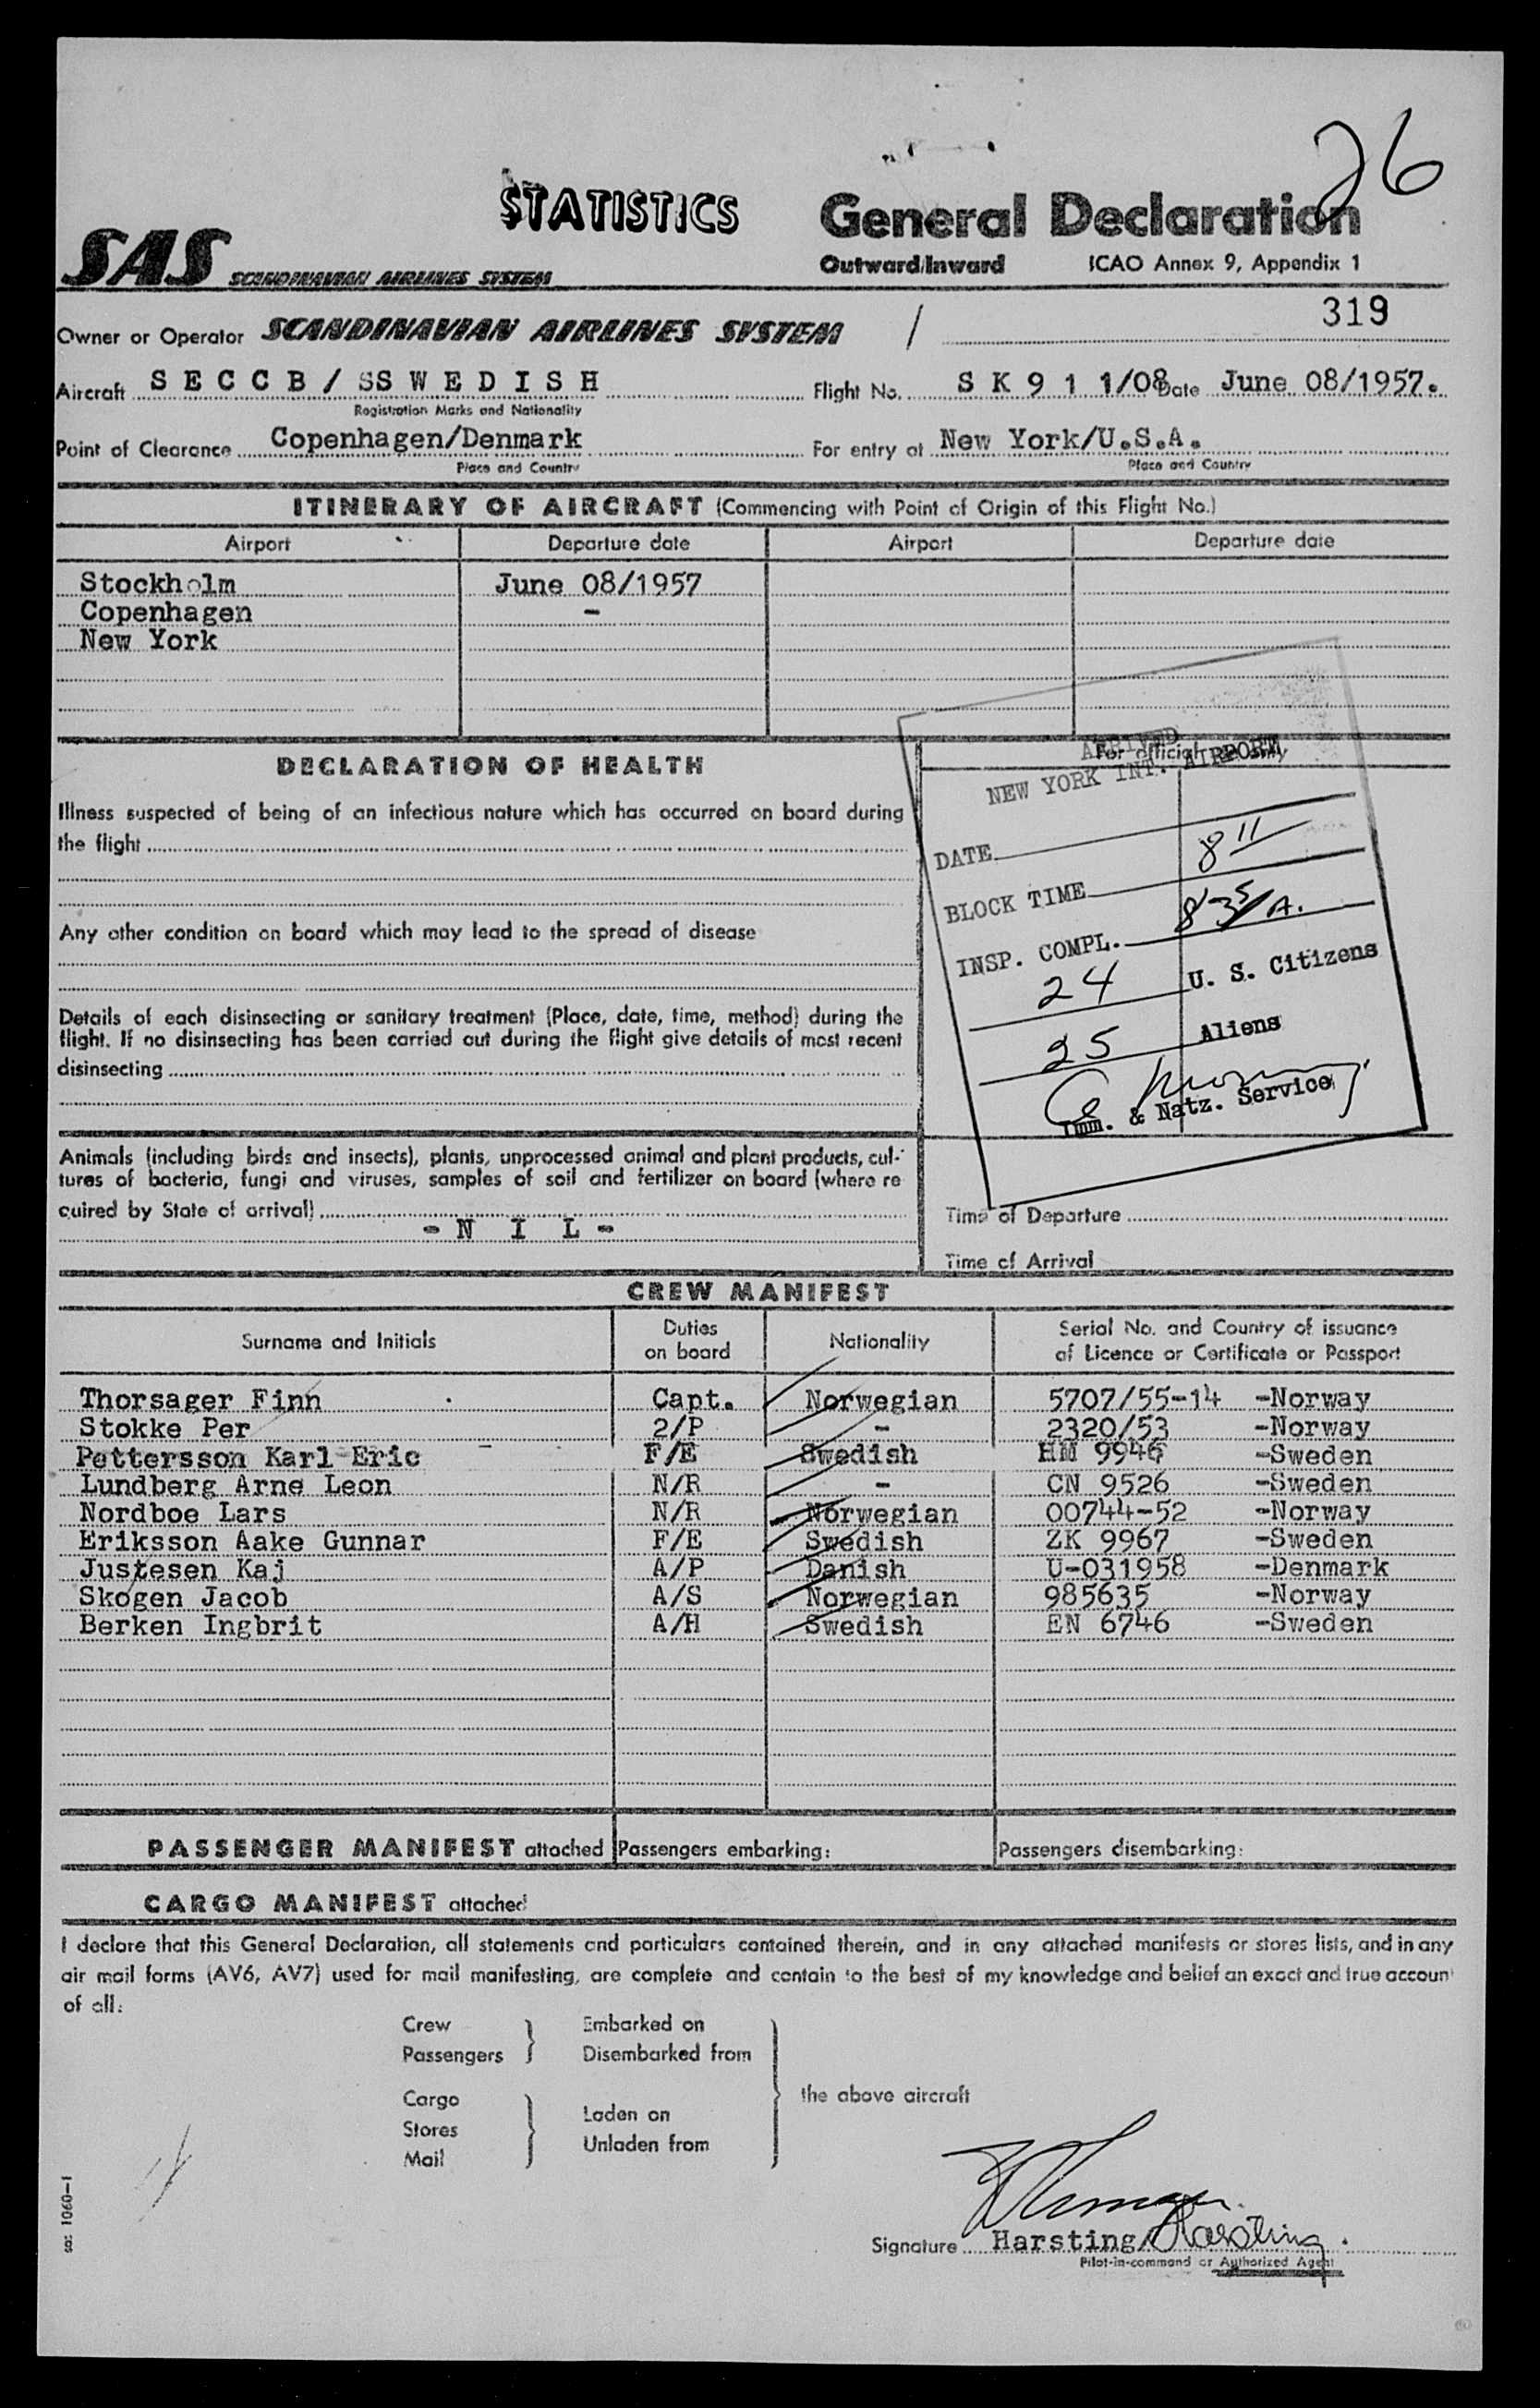 26
STATISTICS
General Declaration
SAS SCANDINAVIAN AIRLINES SYSTEM
Outward/Inward ICAO Annex 9, Appendix 1
319
Owner or Operator SCANDINAVIAN AIRLINES SYSTEM /
Aircraft S E C C B / SS W E D I S H Flight No. S K 9 1 1/08 Date June 08/1957.
Registration Marks and Nationality
Point of Clearance Copenhagen/Denmark For entry at New York/U.S.A.
Place and Country Place and Country
ITINERARY OF AIRCRAFT (Commencing with Point of Origin of this Flight No.)
Airport Departure date Airport Departure date
Stockholm June 08/1957
Copenhagen -
New York
DECLARATION OF HEALTH
For official use only
ARRIVED
NEW YORK INT. AIRPORT
Illness suspected of being of an infectious nature which has occurred on board during
the flight
DATE
BLOCK TIME 8 11
INSP. COMPL. 8 35/A.
24 U. S. Citizens
25 Aliens
Imm. & Natz. Service
Any other condition on board which may lead to the spread of disease
Details of each disinsecting or sanitary treatment (Place, date, time, method) during the
flight. If no disinsecting has been carried out during the flight give details of most recent
disinsecting
Animals (including birds and insects), plants, unprocessed animal and plant products, cul-
tures of bacteria, fungi and viruses, samples of soil and fertilizer on board (where re
quired by State of arrival)
- N I L -
Time of Departure
Time of Arrival
CREW MANIFEST
Surname and Initials Duties on board Nationality Serial No. and Country of issuance of Licence or Certificate or Passport
Thorsager Finn Capt. Norwegian 5707/55-14 -Norway
Stokke Per 2/P - 2320/53 -Norway
Pettersson Karl-Eric F/E Swedish HN 9946 -Sweden
Lundberg Arne Leon N/R - CN 9526 -Sweden
Nordboe Lars N/R Norwegian 00744-52 -Norway
Eriksson Aake Gunnar F/E Swedish ZK 9967 -Sweden
Justesen Kaj A/P Danish U-031958 -Denmark
Skogen Jacob A/S Norwegian 985635 -Norway
Berken Ingbrit A/H Swedish EN 6746 -Sweden
PASSENGER MANIFEST attached Passengers embarking: Passengers disembarking:
CARGO MANIFEST attached
I declare that this General Declaration, all statements and particulars contained therein, and in any attached manifests or stores lists, and in any
air mail forms (AV6, AV7) used for mail manifesting, are complete and contain to the best of my knowledge and belief an exact and true accoun
of all:
Crew Embarked on
Passengers Disembarked from
the above aircraft
Cargo
Stores Laden on
Mail Unladen from
sas 1060-1
Signature Harsting/Harsting.
Pilot-in-command or Authorized Agent